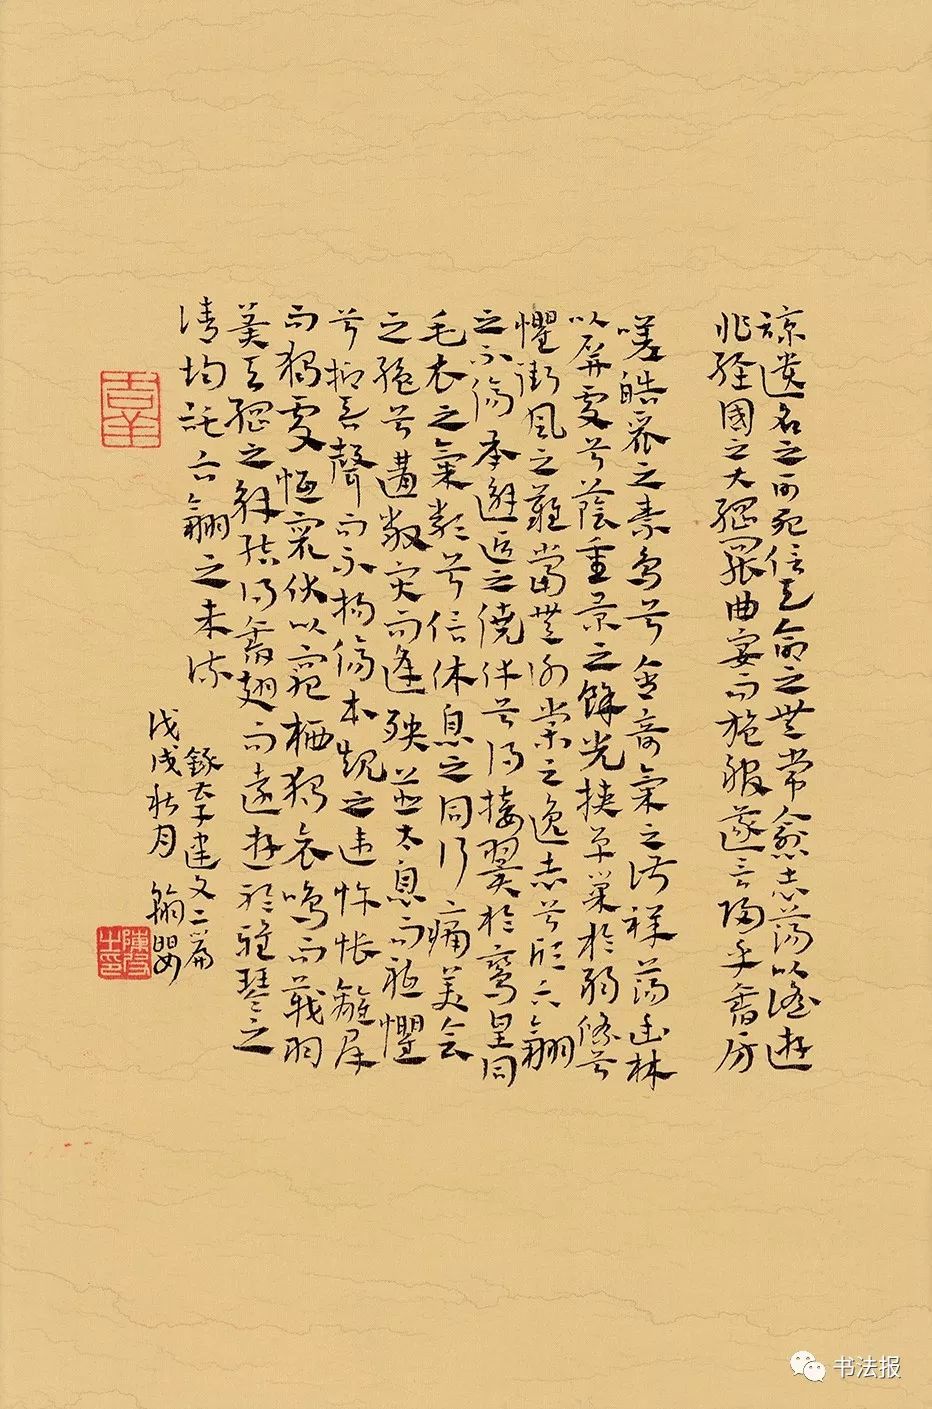 諒遺名之可紀信天命之無常愈志蕩以淫遊
非經國之大綱罷曲宴而旋服遂言歸乎舊房
嗟皓麗之素鳥兮含奇氣之淑祥薄幽林
以屏處兮蔭重景之餘光挾單巢於弱條兮
懼衝風之難當無沙棠之逸志兮欣六翮
之不傷承邂逅之僥倖兮得接翼於鸞皇同
毛衣之氣類兮信休息之同行痛美會
之絕兮遘嚴災而逢殃並太息而祗懼
兮抑吞聲而不揚傷本規之違忤悵離群
而獨處恆竄伏以窮栖獨哀鳴而戢羽
冀大綱之解結得奮翅而遠遊聆雅琴之
清均託六翮之末流
錄子建文二篇
戊戌秋月 翰嬰
吉羊
书法报